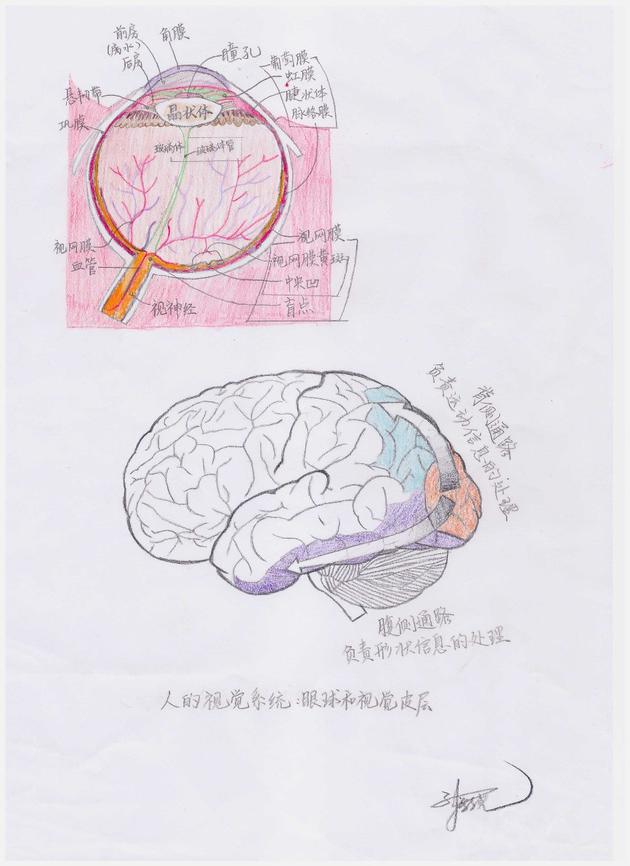 前房
(房水)
后房
角膜
瞳孔
葡萄膜
虹膜
睫状体
脉络膜
悬韧带
巩膜
晶状体
玻璃体
玻璃体管
视网膜
血管
视神经
视网膜
视网膜黄斑
中央凹
盲点
背侧通路
负责运动信息的处理
腹侧通路
负责形状信息的处理
人的视觉系统:眼球和视觉皮层